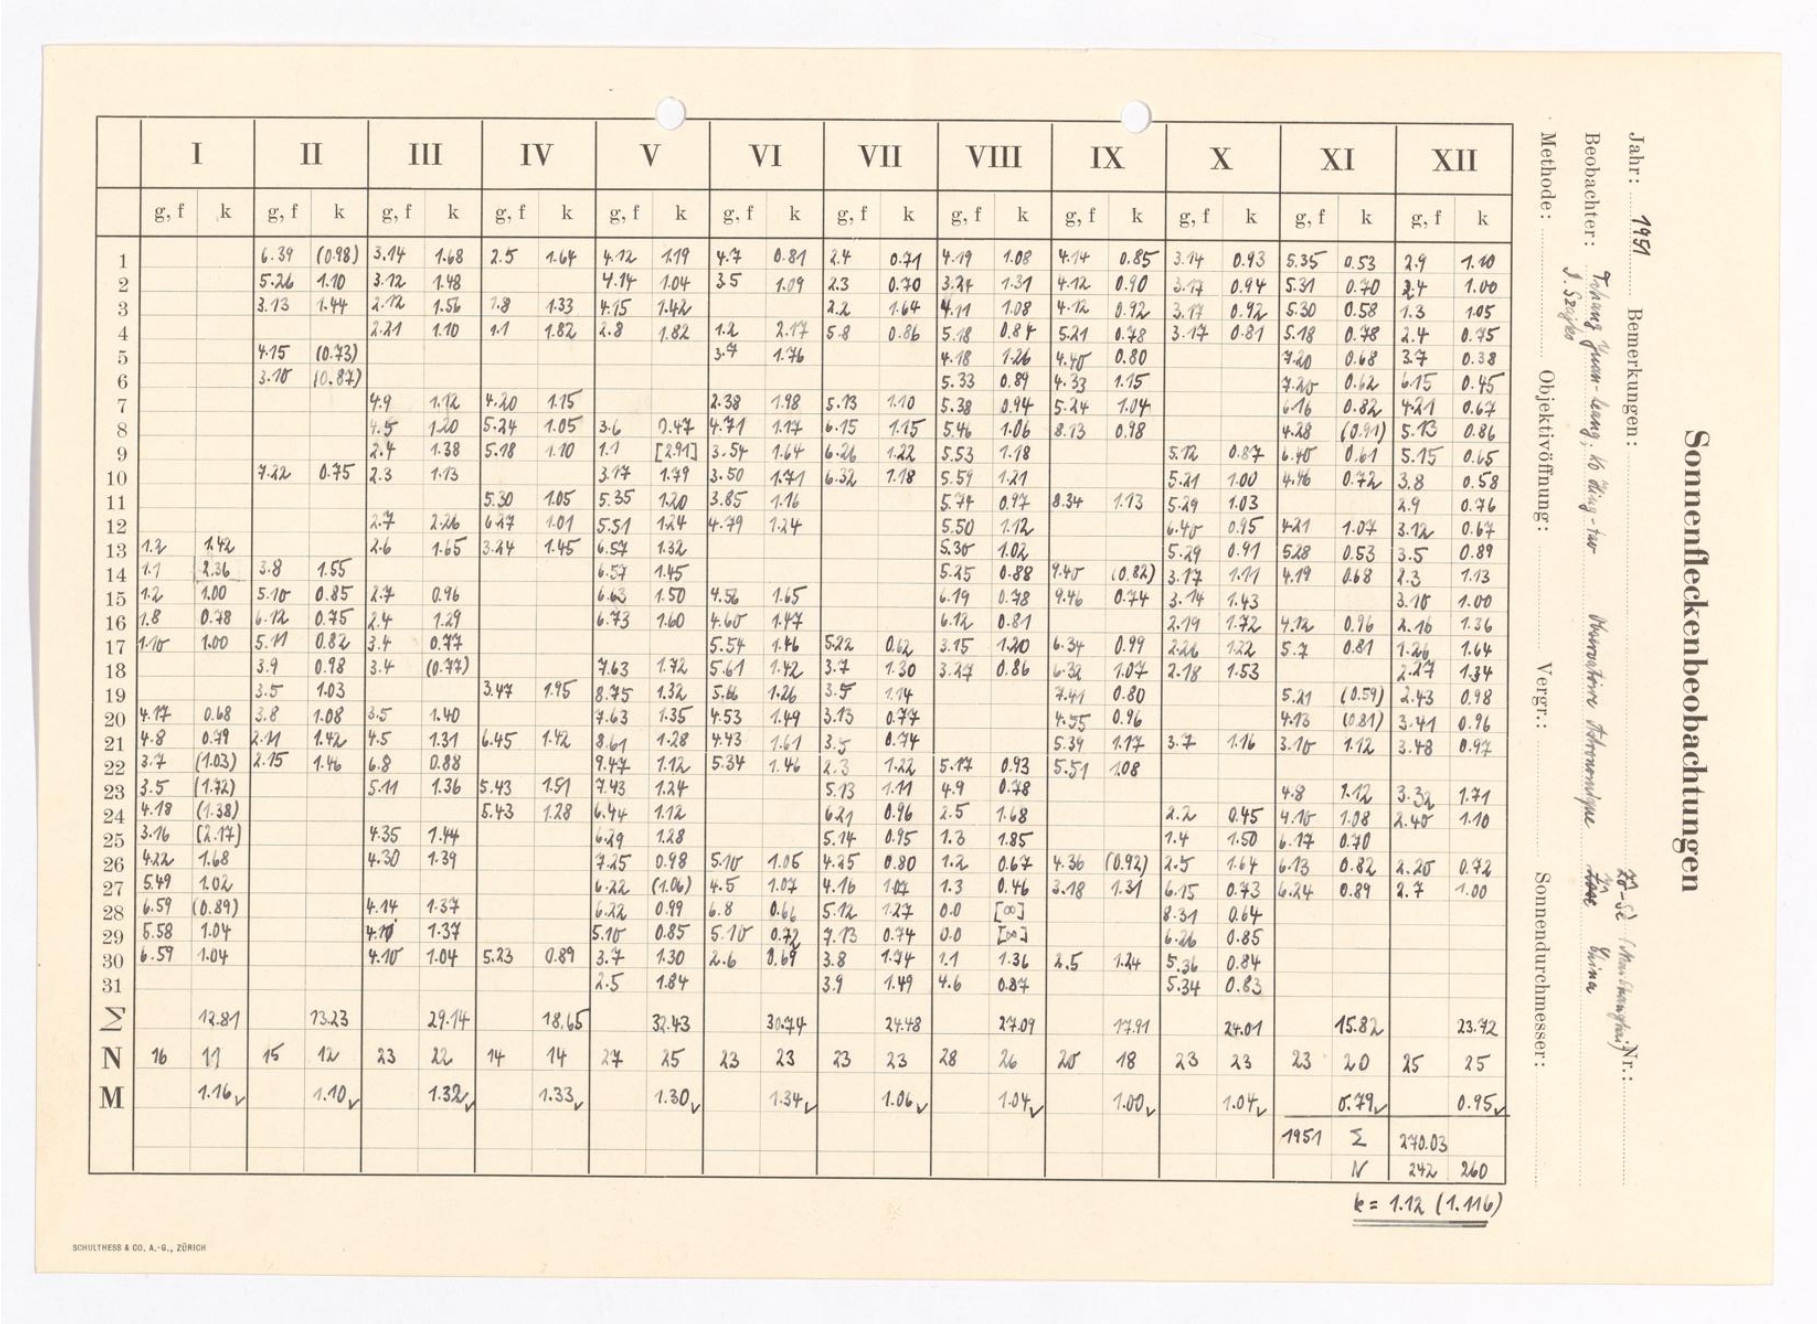 Sonnenfleckenbeobachtungen
Jahr: 1951 Bemerkungen: Zô-Sè Nr.:
Beobachter: Observatoire Astronomique China
Methode: Objektivöffnung: Vergr.: Sonnendurchmesser:
I II III IV V VI VII VIII IX X XI XII
g, f k g, f k g, f k g, f k g, f k g, f k g, f k g, f k g, f k g, f k g, f k g, f k
1 6.39 (0.98) 3.14 1.68 2.5 1.64 4.12 1.19 4.7 0.81 2.4 0.71 4.19 1.08 4.14 0.85 3.14 0.93 5.35 0.53 2.9 1.10
2 5.26 1.10 3.12 1.48 4.14 1.04 3.5 1.09 2.3 0.70 3.24 1.31 4.12 0.90 3.17 0.94 5.31 0.70 2.4 1.00
3 3.13 1.44 2.12 1.56 1.8 1.33 4.15 1.42 2.2 1.64 4.11 1.08 4.12 0.92 3.17 0.92 5.30 0.58 1.3 1.05
4 2.21 1.10 1.1 1.82 2.8 1.82 1.2 2.17 5.8 0.86 5.18 0.84 5.21 0.78 3.17 0.81 5.18 0.78 2.4 0.75
5 4.15 (0.73) 3.7 1.76 4.18 1.26 4.40 0.80 7.20 0.68 3.7 0.38
6 3.10 (0.87) 5.33 0.89 4.33 1.15 7.20 0.62 6.15 0.45
7 4.9 1.12 4.20 1.15 2.38 1.98 5.13 1.10 5.38 0.94 5.24 1.04 6.16 0.82 4.21 0.67
8 4.5 1.20 5.24 1.05 3.6 0.47 4.71 1.17 6.15 1.15 5.46 1.06 8.73 0.98 4.28 (0.91) 5.13 0.86
9 2.4 1.38 5.18 1.10 1.1 [2.91] 3.54 1.64 6.26 1.22 5.53 1.18 5.12 0.87 6.40 0.61 5.15 0.65
10 7.22 0.75 2.3 1.13 3.17 1.79 3.50 1.71 6.32 1.18 5.59 1.21 5.21 1.00 4.46 0.72 3.8 0.58
11 5.30 1.05 5.35 1.20 3.85 1.16 5.74 0.97 8.34 1.13 5.29 1.03 2.9 0.76
12 2.7 2.26 6.27 1.01 5.51 1.24 4.79 1.24 5.50 1.12 6.40 0.95 4.21 1.07 3.12 0.67
13 1.2 1.42 2.6 1.65 3.24 1.45 6.57 1.32 5.30 1.02 5.29 0.91 5.28 0.53 3.5 0.89
14 1.1 2.36 3.8 1.55 6.57 1.45 5.25 0.88 9.40 (0.82) 3.17 1.11 4.19 0.68 2.3 1.13
15 1.2 1.00 5.10 0.85 2.7 0.96 6.63 1.50 4.56 1.65 6.19 0.78 9.46 0.74 3.14 1.43 3.10 1.00
16 1.8 0.78 6.12 0.75 2.4 1.29 6.73 1.60 4.60 1.47 6.12 0.81 2.19 1.72 4.12 0.96 2.16 1.36
17 1.10 1.00 5.11 0.82 3.4 0.77 5.54 1.46 5.22 0.62 3.15 1.20 6.34 0.99 2.26 1.22 5.7 0.81 1.26 1.64
18 3.9 0.98 3.4 (0.77) 7.63 1.72 5.61 1.42 3.7 1.30 3.27 0.86 6.32 1.07 2.18 1.53 2.27 1.34
19 3.5 1.03 3.47 1.95 8.75 1.32 5.66 1.26 3.5 1.14 7.41 0.80 5.21 (0.59) 2.43 0.98
20 4.17 0.68 3.8 1.08 3.5 1.40 7.63 1.35 4.53 1.49 3.13 0.77 4.55 0.96 4.13 (0.81) 3.41 0.96
21 4.8 0.79 2.11 1.42 4.5 1.31 6.45 1.42 8.61 1.28 4.43 1.61 3.5 0.74 5.39 1.17 3.7 1.16 3.10 1.12 3.48 0.97
22 3.7 (1.03) 2.15 1.46 6.8 0.88 9.47 1.12 5.34 1.46 2.3 1.22 5.17 0.93 5.51 1.08
23 3.5 (1.72) 5.11 1.36 5.43 1.51 7.43 1.24 5.13 1.11 4.9 0.78 4.8 1.12 3.32 1.71
24 4.18 (1.38) 5.43 1.28 6.44 1.12 6.21 0.96 2.5 1.68 2.2 0.45 4.10 1.08 2.40 1.10
25 3.16 (2.17) 4.35 1.44 6.29 1.28 5.14 0.95 1.3 1.85 1.4 1.50 6.17 0.70
26 4.22 1.68 4.30 1.39 7.25 0.98 5.10 1.05 4.25 0.80 1.2 0.67 4.36 (0.92) 2.5 1.64 6.13 0.82 2.20 0.72
27 5.49 1.02 6.22 (1.06) 4.5 1.07 4.16 1.07 1.3 0.46 3.18 1.31 6.15 0.73 6.24 0.89 2.7 1.00
28 6.59 (0.89) 4.14 1.37 6.22 0.99 6.8 0.66 5.12 1.27 0.0 [∞] 8.31 0.64
29 5.58 1.04 4.10 1.37 5.10 0.85 5.10 0.72 7.13 0.74 0.0 [∞] 6.26 0.85
30 6.59 1.04 4.10 1.04 5.23 0.89 3.7 1.30 2.6 0.69 3.8 1.74 1.1 1.36 2.5 1.24 5.36 0.84
31 2.5 1.84 3.9 1.49 4.6 0.87 5.34 0.83
Σ 12.81 13.23 29.14 18.65 32.43 30.74 24.48 27.09 17.91 24.01 15.82 23.72
N 16 11 15 12 23 22 14 14 27 25 23 23 23 23 28 26 20 18 23 23 23 20 25 25
M 1.16✓ 1.10✓ 1.32✓ 1.33✓ 1.30✓ 1.34✓ 1.06✓ 1.04✓ 1.00✓ 1.04✓ 0.79✓ 0.95✓
1951 Σ 270.03
N 242 260
k = 1.12 (1.116)
SCHULTHESS & CO. A.-G., ZÜRICH